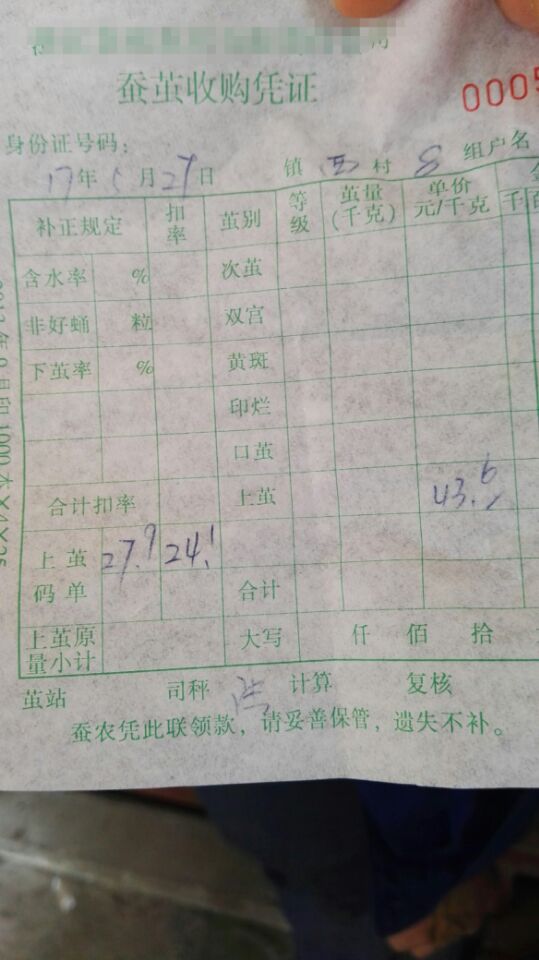 蚕茧收购凭证
0005
身份证号码：
17年 月27日 镇 西 村 组户名
补正规定 扣率 茧别 等级 茧量(千克) 单价元/千克 千 百
含水率 % 次茧
非好蛹 粒 双宫
下茧率 % 黄斑
印烂
口茧
合计扣率 上茧 43.6
上茧码单 27.9 24.1 合计
上茧原量小计 大写 仟 佰 拾
茧站 司秤 计算 复核
蚕农凭此联领款，请妥善保管，遗失不补。